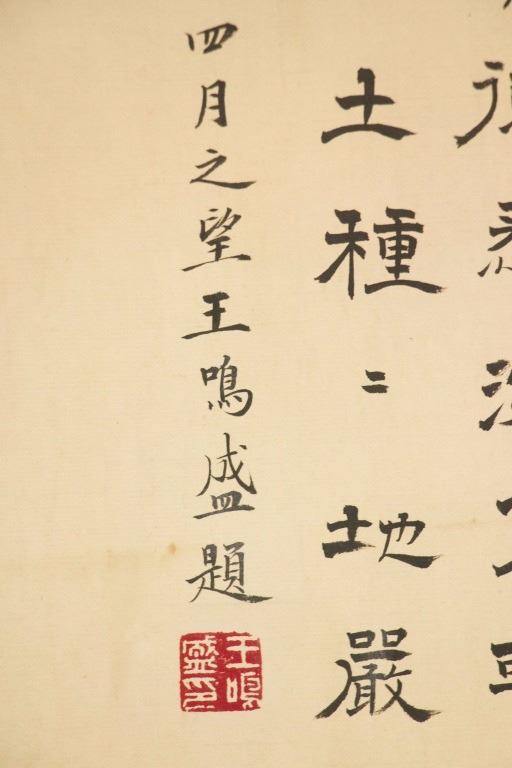 土種〻地嚴
四月之望王鳴盛題
王鳴盛印